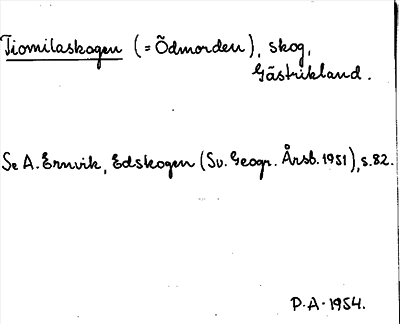 Tiomilaskogen (= Ödmorden), skog,
Gästrikland.
Se A. Ernvik, Edskogen (Sv. Geogr. Årsb. 1951), s. 82.
P.A. 1954.